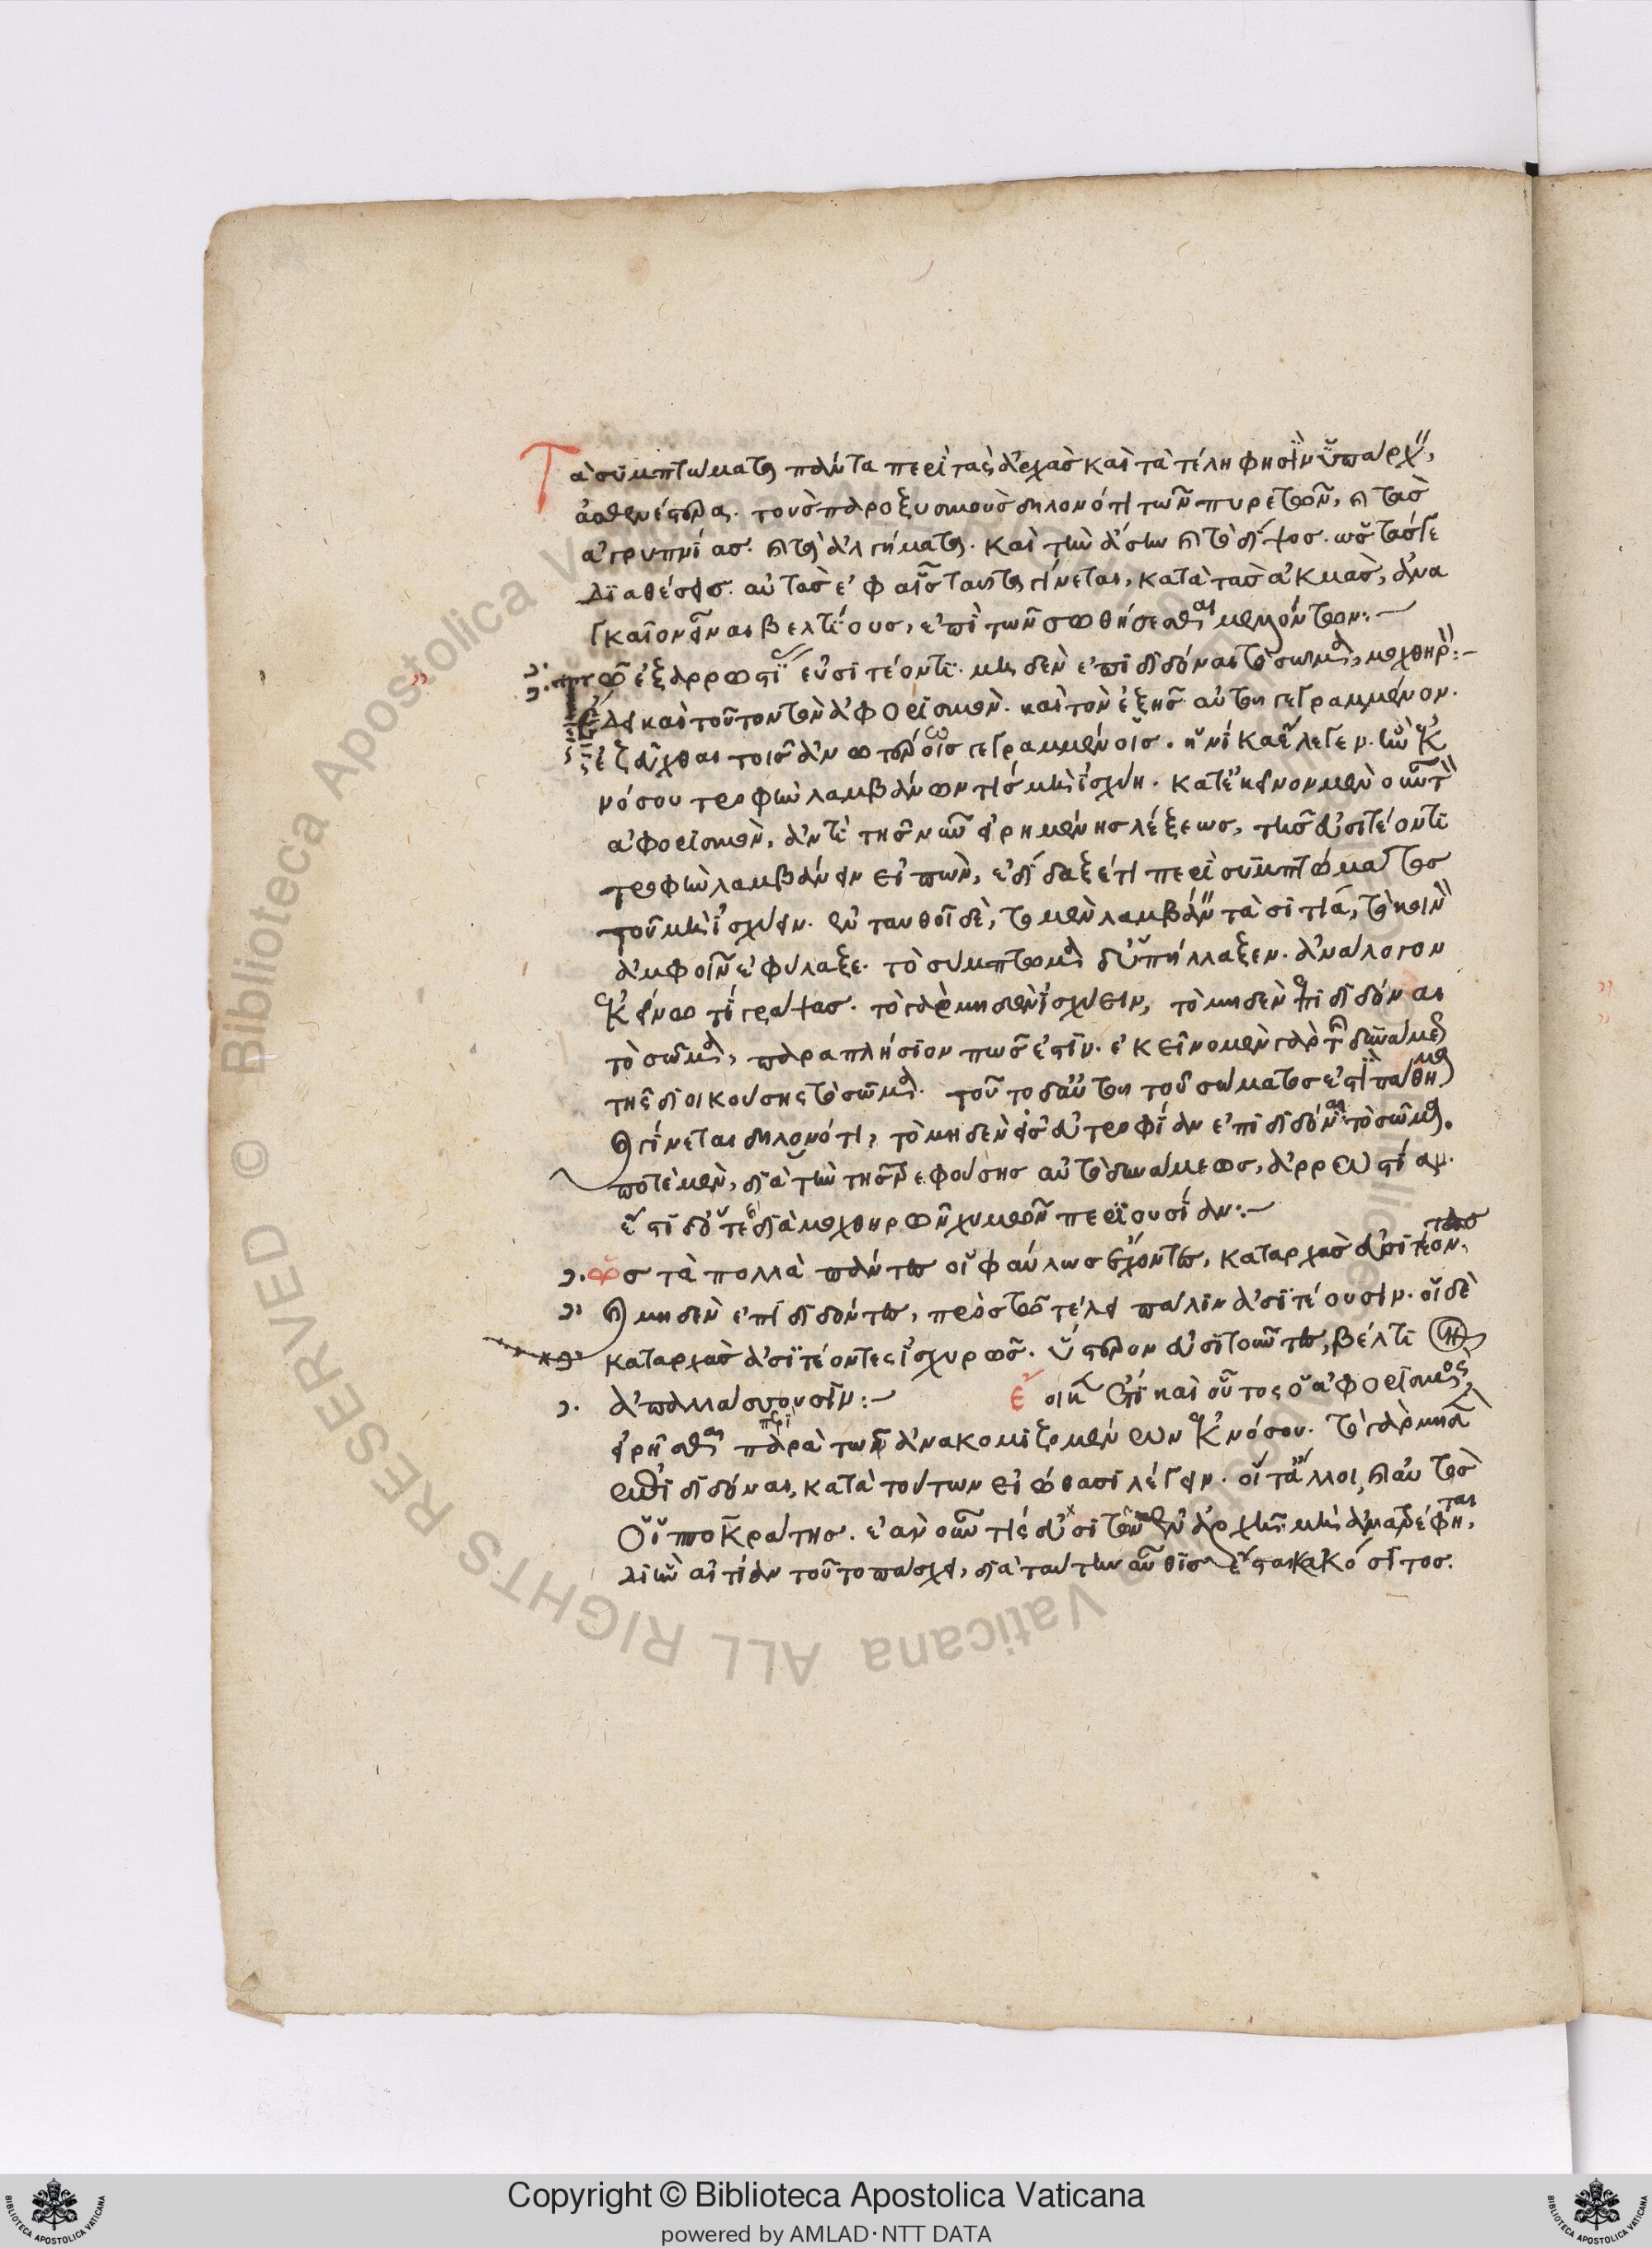 Τὰ συμπτώματα πάντα περὶ τὰς ἀρχὰς καὶ τὰ τέλη φησὶν ὑπάρχ
ἀσθενέστερα. τοὺς παροξυσμοὺς δηλονότι τῶν πυρετῶν, καὶ τὰς
ἀγρυπνίας. καὶ τὰ ἀλγήματα. καὶ τὴν ἄσην καὶ τὸ δίψος. ὥς τάς γε
διαθέσεις αὐτὰς ἐφ αἷς ταῦτα γίνεται, κατὰ τὰς ἀκμὰς, ἀνα
γκαῖον εἶναι βελτίους, ἐπὶ τῶν σωθήσεσθαι μελλόντων:
ἐξ ἀρρωστί εὐσιτέοντι μηδὲν ἐπιδιδόναι τὸ σῶμα, μοχθηρ:
καὶ τοῦτον τὸν ἀφορισμὸν καὶ τὸν ἐξῆς αὐτῷ γεγραμμένον.
ἐζεῦχθαι τοῖς ἀνωτέρω γεγραμμένοις. ἡνίκα ἔλεγεν. ἢν ἐκ
νόσου τροφὴν λαμβάνων τίς μὴ ἰσχύῃ. κατ' ἐκεῖνον μὲν οὖν τ
ἀφορισμὸν, ἀντὶ τῆς νῦν εἰρημένης λέξεως, τῆς εὐσιτέοντι
τροφὴν λαμβάνειν εἰπὼν, ἐδίδαξέ τι περὶ συμπτώματος
τοῦ μὴ ἰσχύειν. ἐνταυθοῖ δὲ, τὸ μὲν λαμβάν τὰ σιτία, τὸ κοιν
ἀμφοῖν ἐφύλαξε. τὸ σύμπτωμα δ' ὑπήλλαξεν. ἀνάλογον
ἐκείνω τί γράψας. τὸ γὰρ μηδὲν ἰσχύειν, τὸ μηδὲν ἐπιδιδόναι
τὸ σῶμα, παραπλήσιον πώς ἐστιν. ἐκεῖνο μὲν γὰρ τ δυνάμε
τῆς διοικούσης τὸ σῶμα. τοῦτο δ' αὐτοῦ τοῦ σώματος ἐστὶ πάθημα
γίνεται δηλονότι, τὸ μηδὲν εἰς εὐτροφίαν ἐπιδιδόναι τὸ σῶμα.
ποτὲ μὲν, διὰ τὴν τῆς τρεφούσης αὐτὸ δυνάμεως, ἀρρωστίαν.
ἔστι δ' ὅτε διὰ μοχθηρῶν χυμῶν περιουσίαν:
ὡς τὰ πολλὰ πάντες οἱ φαύλως ἔχοντες, καταρχὰς εὐσιτέοντες
καὶ μηδὲν ἐπιδιδόντες, πρὸς τῷ τέλει πάλιν ἀσιτέουσιν. οἱ δὲ
καταρχὰς ἀσιτέοντες ἰσχυρῶς. ὕστερον εὐσιτοῦντες, βέλτι
ἀπαλλάσσουσιν: ἔοικε καὶ οὗτος ὁ ἀφορισμὸς,
εἰρῆσθαι περὶ τῶν ἀνακομιζομένων ἐκ νόσου. τὸ γὰρ μηδὲ
ἐπιδιδόναι, κατὰ τούτων εἰώθασι λέγειν. οἵ τ' ἄλλοι, καὶ αὐτὸς
ὁ ἱπποκράτης. ἐὰν οὖν τίς εὐσιτῶν ἐν ἀρχῇ, μὴ ἀνατρέφηται
δι' ἣν αἰτίαν τοῦτο πάσχει, διὰ ταύτην αὖθις ἔσται κακόσιτος.
Copyright © Biblioteca Apostolica Vaticana
powered by AMLAD·NTT DATA